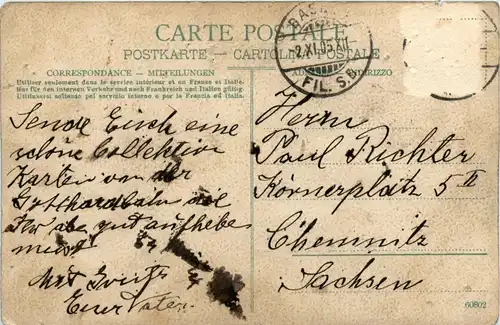 CARTE POSTALE
POSTKARTE - CARTOLINA POSTALE
CORRESPONDANCE - MITTEILUNGEN
INDIRIZZO
Utiliser seulement dans le service intérieur et en France et Italie.
Nur für den internen Verkehr und nach Frankreich und Italien gültig.
Utilizzarsi soltanto pel servizio interno e per la Francia ed Italia.
BAS
2.XI.05.XII
FIL. S.B.
Sende Euch eine
schöne Collektion
Karten von der
Gotthardbahn die
gut aufheben
musst
Euer Vater.
Herrn
Paul Richter
Körnerplatz 5 II
Chemnitz
Sachsen
60802